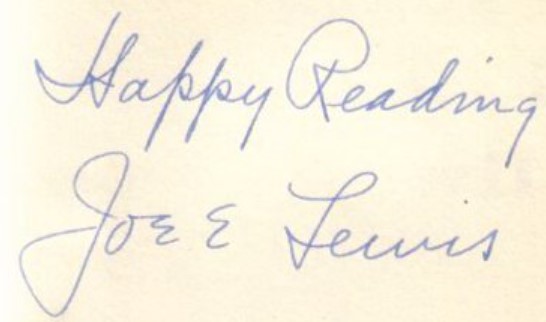 Happy Reading
Joe E Lewis